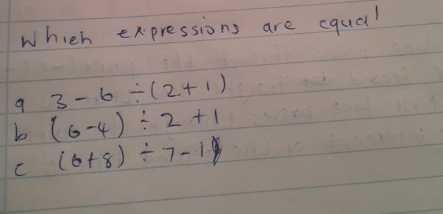 Which expressions are equal
a 3 - 6 ÷ (2 + 1)
b (6-4) ÷ 2 + 1
c (6+8) ÷ 7 - 1